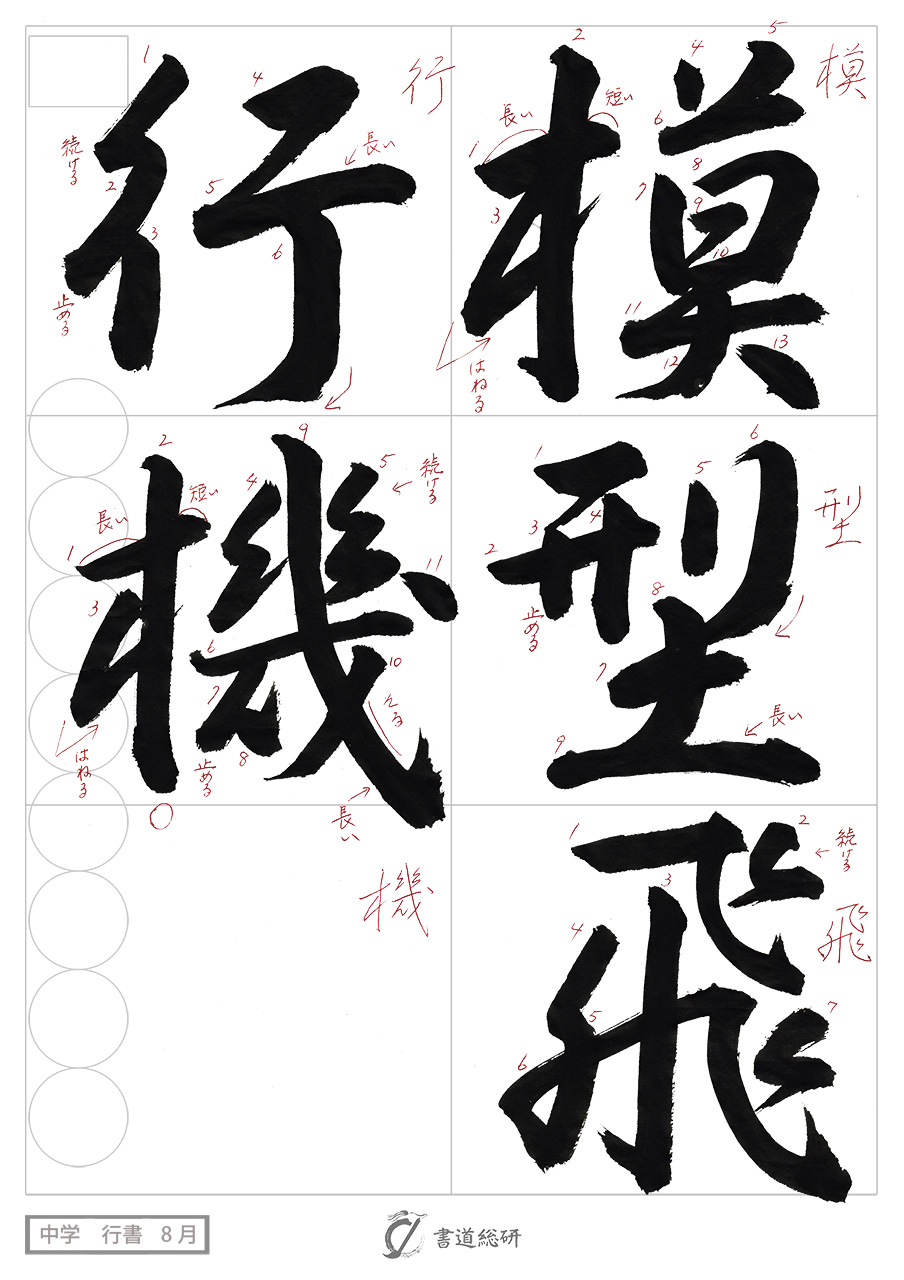 模型飛
行機
模
1
2
3
4
5
6
7
8
9
10
11
12
13
長い
短い
はねる
型
1
2
3
4
5
6
7
8
9
止める
長い
飛
1
2
3
4
5
6
7
続ける
行
1
2
3
4
5
6
続ける
止める
長い
機
1
2
3
4
5
6
7
8
9
10
11
長い
短い
続ける
はねる
止める
そる
長い
中学 行書 8月
書道総研